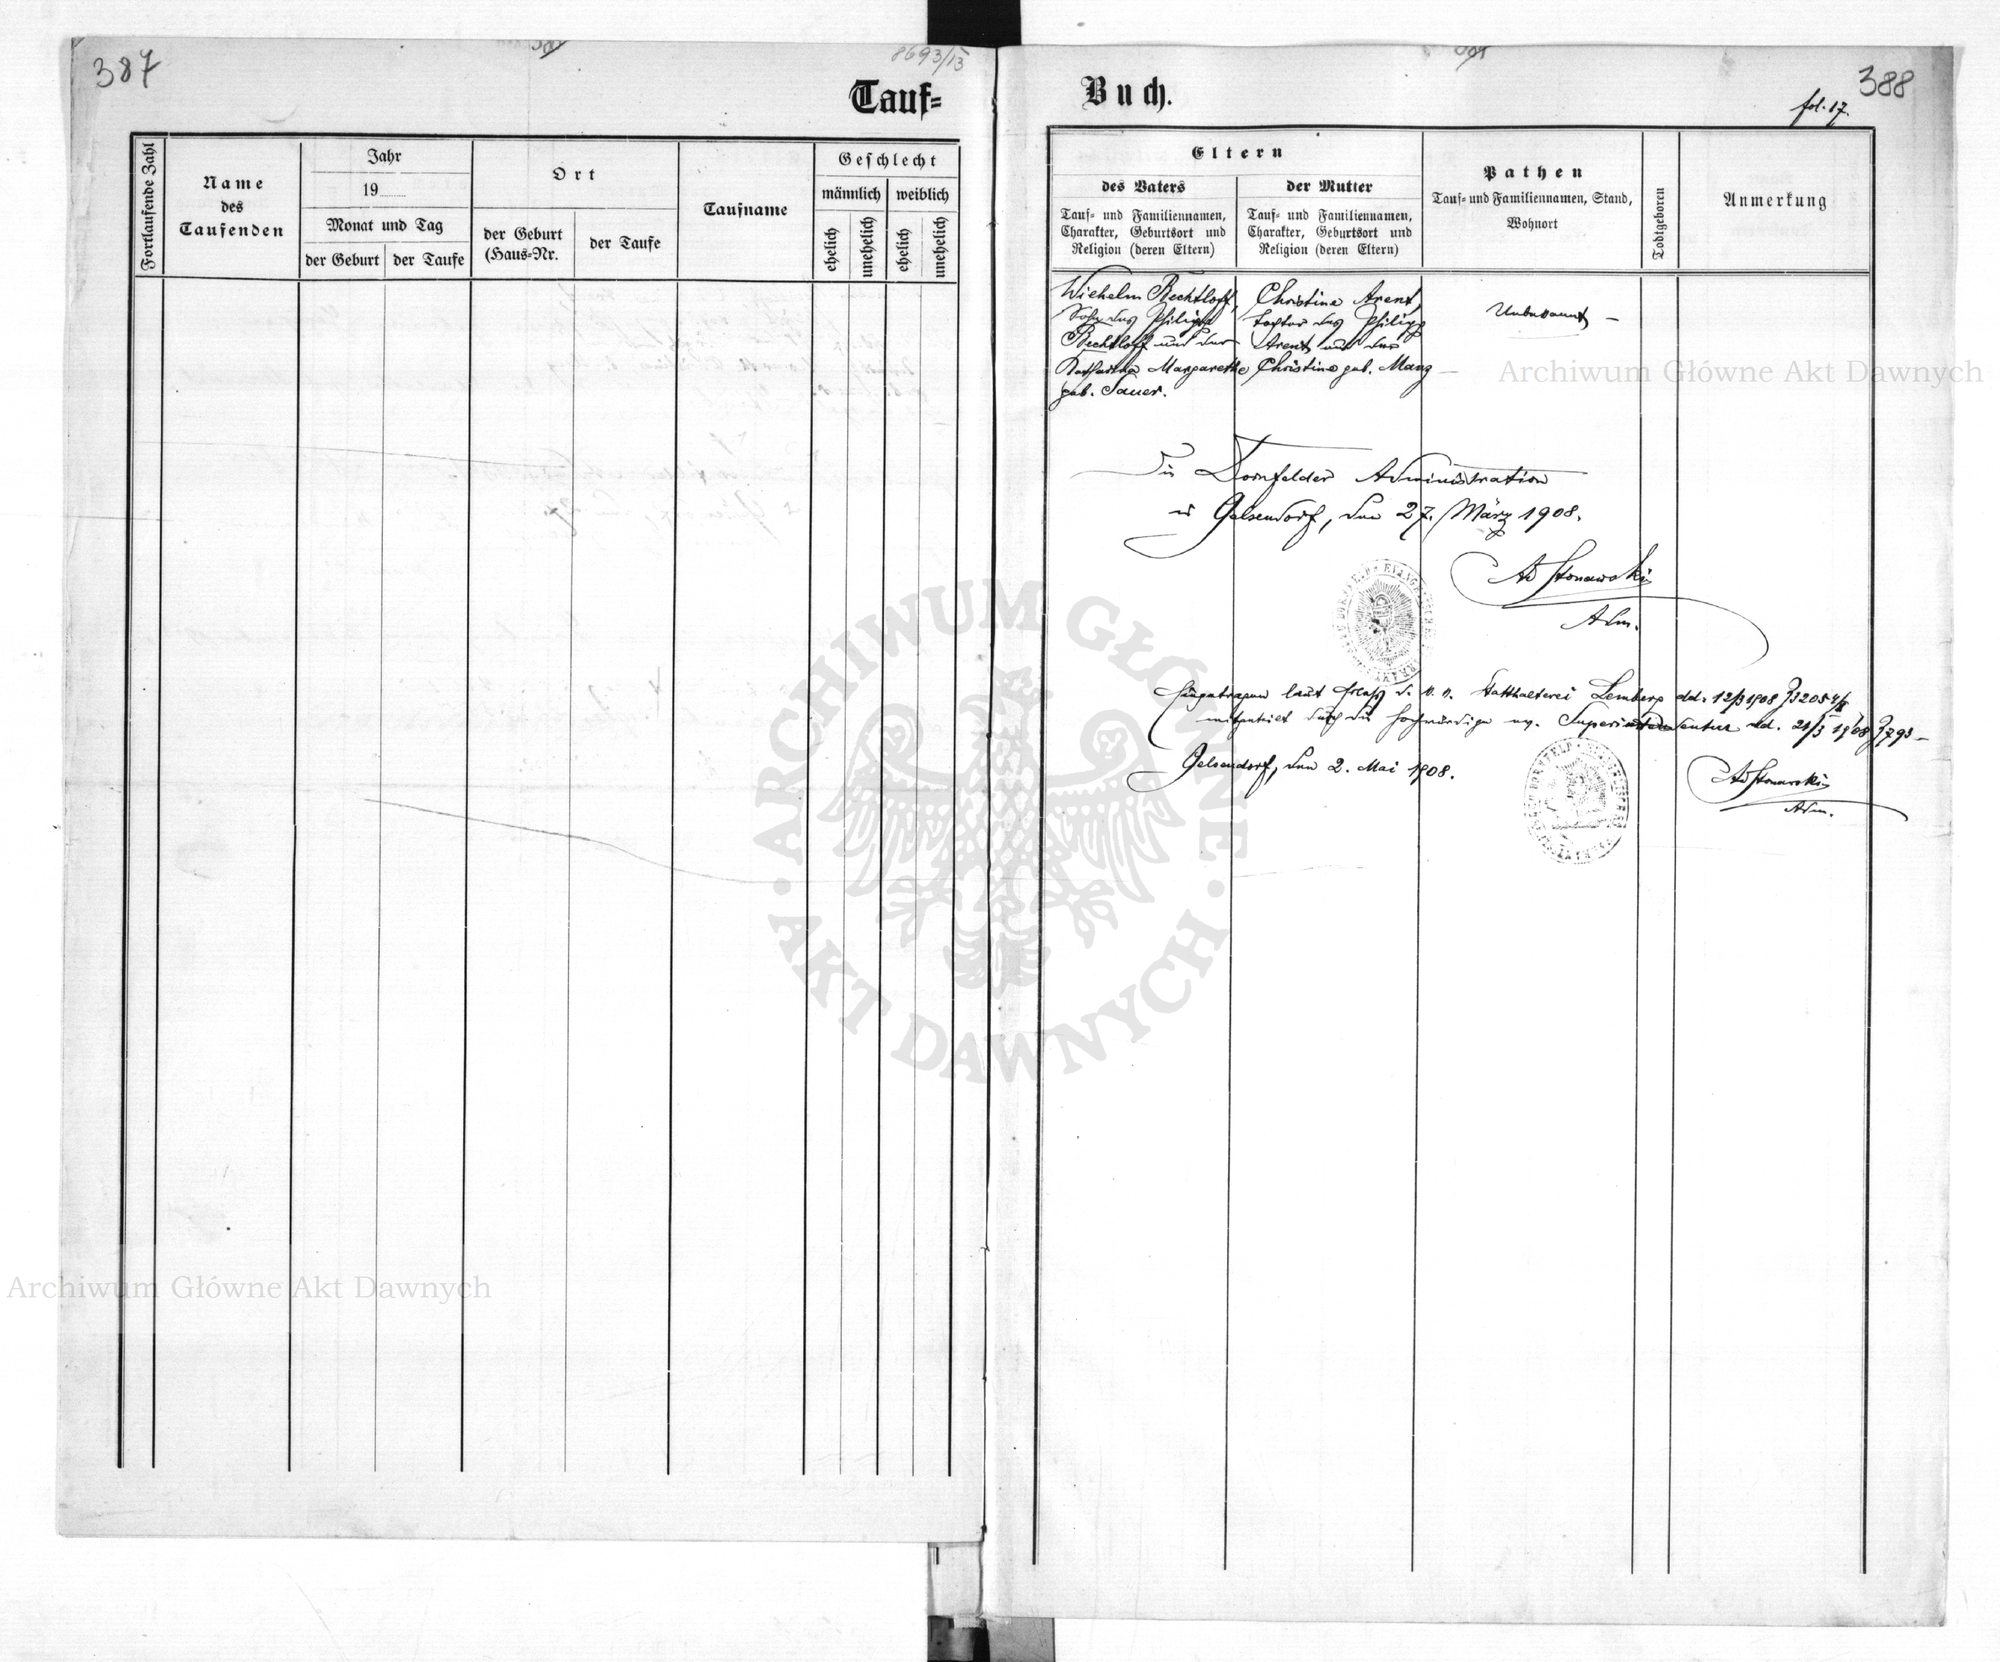 387
8693/13
Tauf=
Fortlaufende Zahl
Name
des
Taufenden
Jahr
19
Monat und Tag
der Geburt
der Taufe
Ort
der Geburt
(Haus=Nr.
der Taufe
Taufname
Geschlecht
männlich
weiblich
ehelich
unehelich
ehelich
unehelich
Buch.
388
fol. 17.
Eltern
des Vaters
Tauf= und Familiennamen,
Charakter, Geburtsort und
Religion (deren Eltern)
der Mutter
Tauf= und Familiennamen,
Charakter, Geburtsort und
Religion (deren Eltern)
Pathen
Tauf= und Familiennamen, Stand,
Wohnort
Todtgeboren
Anmerkung
Wilhelm Rechtloff,
Sohn des Philipp
Rechtloff und der
Katharina Margarethe
geb. Sauer.
Christina Arent,
Tochter des Philipp
Arent und der
Christina geb. Mang
Unbekannt —
Die Dornfelder Administration
in Gelsendorf, den 27. März 1908.
Ad Stonawski
Adm.
Eingetragen laut Erlass d. k. k. Statthalterei Lemberg dd. 12/3 1908 Z 32054/
mitgeteilt durch die hochwürdige ev. Superintendentur dd. 21/3 1908 Z 793 —
Gelsendorf, den 2. Mai 1908.
Ad Stonawski
Adm.
Archiwum Główne Akt Dawnych
ARCHIWUM GŁÓWNE
AKT DAWNYCH
Archiwum Główne Akt Dawnych